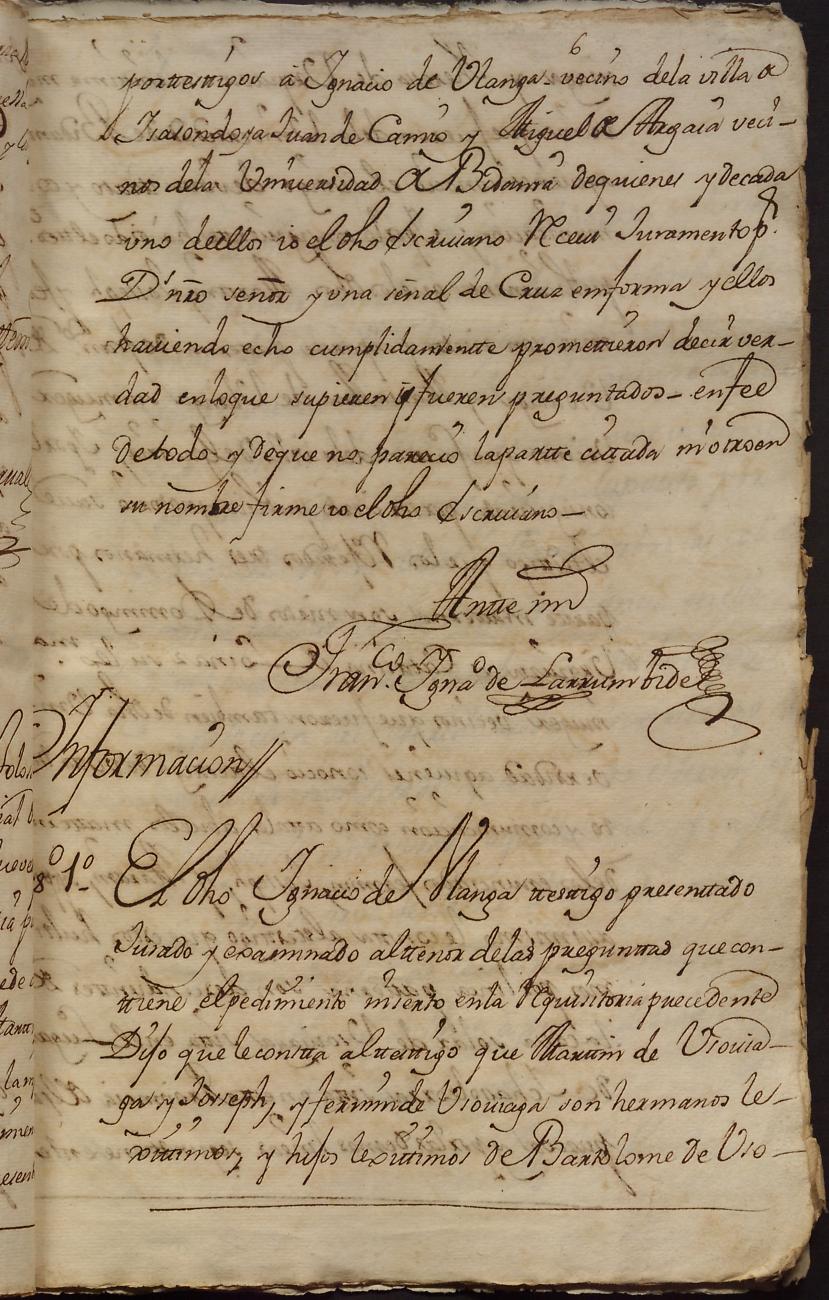 por ttestigos a Ygnacio de Vlanga vecino de la villa de
Isasondo ya Juan de Camio y Miguel de Argaia veci-
nos dela Vniuersidad de Bidania de quienes y de cada
vno de ellos io el dho Escriuano Reciui Juramento pr.
D.s nro señor y vna señal de Cruz em forma y ellos
hauiendo echo cumplidamentte promettieron decir ver-
dad en loque supieren y fueren preguntados - en fee
de todo y de que no parecio la partte cittada ni otro en
su nombre firme io el dho Escriuano -
Antte mi
Fran.co Ygna.o de Larrumbide
Informacion//
1º El dho Ygnacio de Vlanga ttestigo presenttado
Jurado y examinado al ttenor de las preguntas que con-
ttiene el pedimiento inserto en la Requisitoria precedente
Dijo que le consta al ttesttigo que Martin de Vsouia-
ga y Joseph, y fermin de Vsouiaga son hermanos le-
xittimos, y hijos lexittimos de Bartolome de Vso-